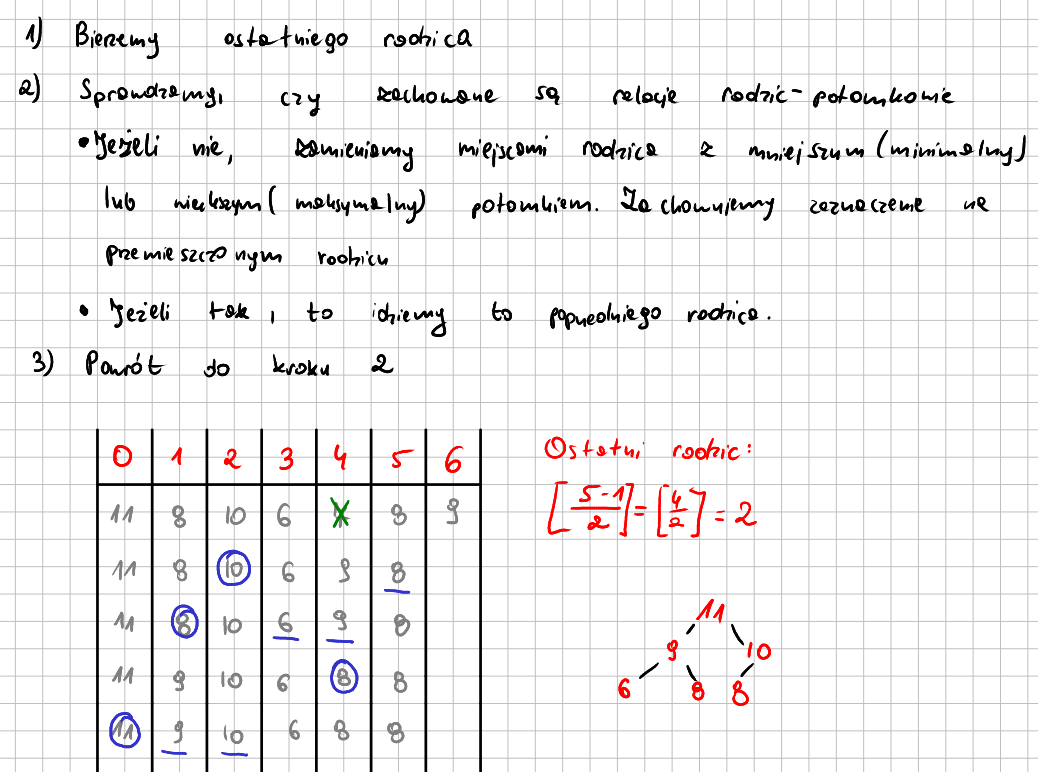 1) Bierzemy ostatniego rodzica
2) Sprawdzamy, czy zachowane są relacje rodzic-potomkowie
• Jeżeli nie, zamieniamy miejscami rodzica z mniejszym (minimalny)
lub większym (maksymalny) potomkiem. Zachowujemy zaznaczenie na
przemieszczonym rodzicu
• Jeżeli tak, to idziemy to poprzedniego rodzica.
3) Powrót do kroku 2
0 1 2 3 4 5 6
11 8 10 6 8 9
11 8 10 6 9 8
11 8 10 6 9 8
11 9 10 6 8 8
11 9 10 6 8 8
Ostatni rodzic:
[5-1/2] = [4/2] = 2
11
9 10
6 8 8